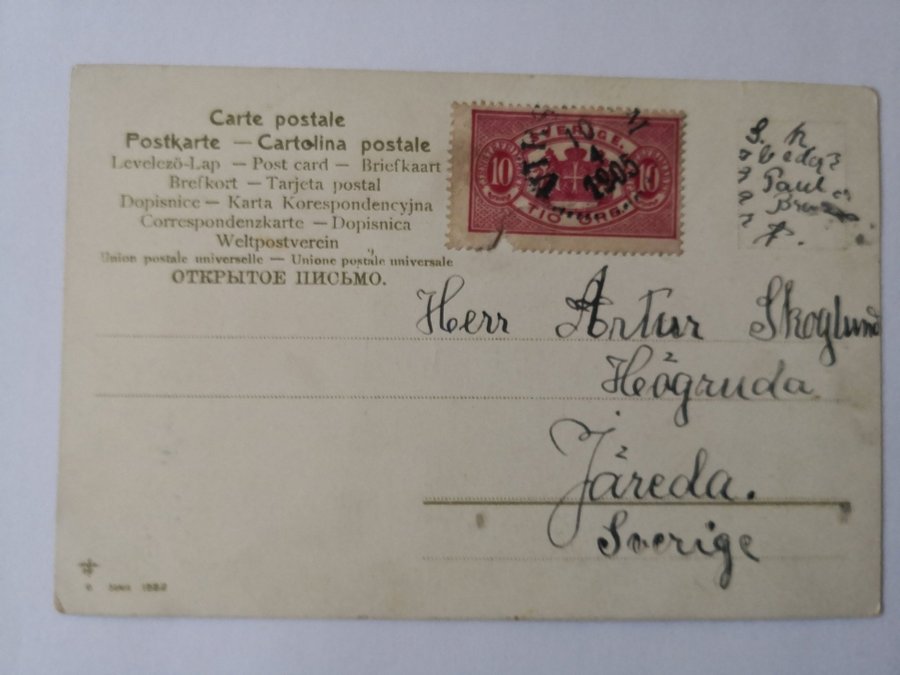 Carte postale
Postkarte — Cartolina postale
Levelező-Lap — Post card — Briefkaart
Brefkort — Tarjeta postal
Dopisnice — Karta Korespondencyjna
Correspondenzkarte — Dopisnica
Weltpostverein
Union postale universelle — Unione postale universale
ОТКРЫТОЕ ПИСЬМО.
SVERIGE.
10 10
TIO ÖRE
10
1905
S. K
Paul
Herr Artur Skoglund
Högruda
Järeda.
Sverige